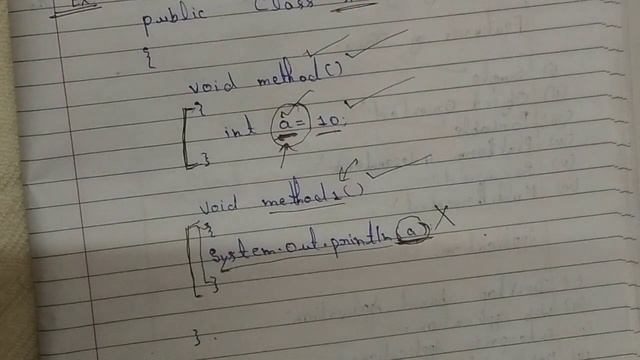 Ex
public class
{
void method()
{
int a = 10;
}
void method1()
{
System.out.println(a)
}
}